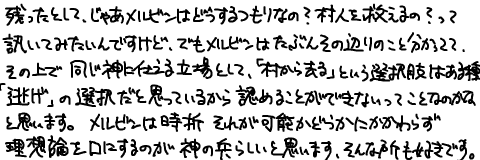 残ったとして、じゃあメルビンはどうするつもりなの？村人を救えるの？って
訊いてみたいんですけど、でもメルビンはたぶんその辺りのこと分かってて、
その上で同じ神に仕える立場として、「村から去る」という選択肢はある種
「逃げ」の選択だと思っているから認めることができないってことなのかな
と思います。メルビンは時折それが可能かどうかにかかわらず
理想論を口にするのが神の兵らしいと思います、そんな所も好きです。